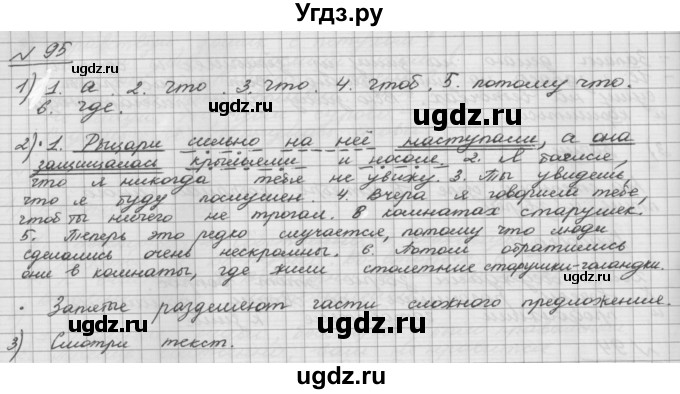 Угдз.ру
№ 95
1) 1. а. 2. что. 3. что. 4. чтоб. 5. потому что.
в. где.
gdz.ru
ugdz.ru
2) 1. Рыцари сильно на неё наступали, а она
защищалась крыльями и носом. 2. Я боялся,
что я никогда тебя не увижу. 3. Ты увидешь,
что я буду послушен. 4. Вчера я говорила тебе,
чтоб ты ничего не трогал. В комнатах старушек.
5. Теперь это редко случается, потому что люди
сделались очень нескромны. в. Потом обратились
они в комнаты, где жили столетние старушки-голандки.
uqdz.ru
uqdz.ru
• Запятые разделяют части сложного предложения.
uqdz.ru
uqdz.ru
3) Смотри текст.
uqdz.ru